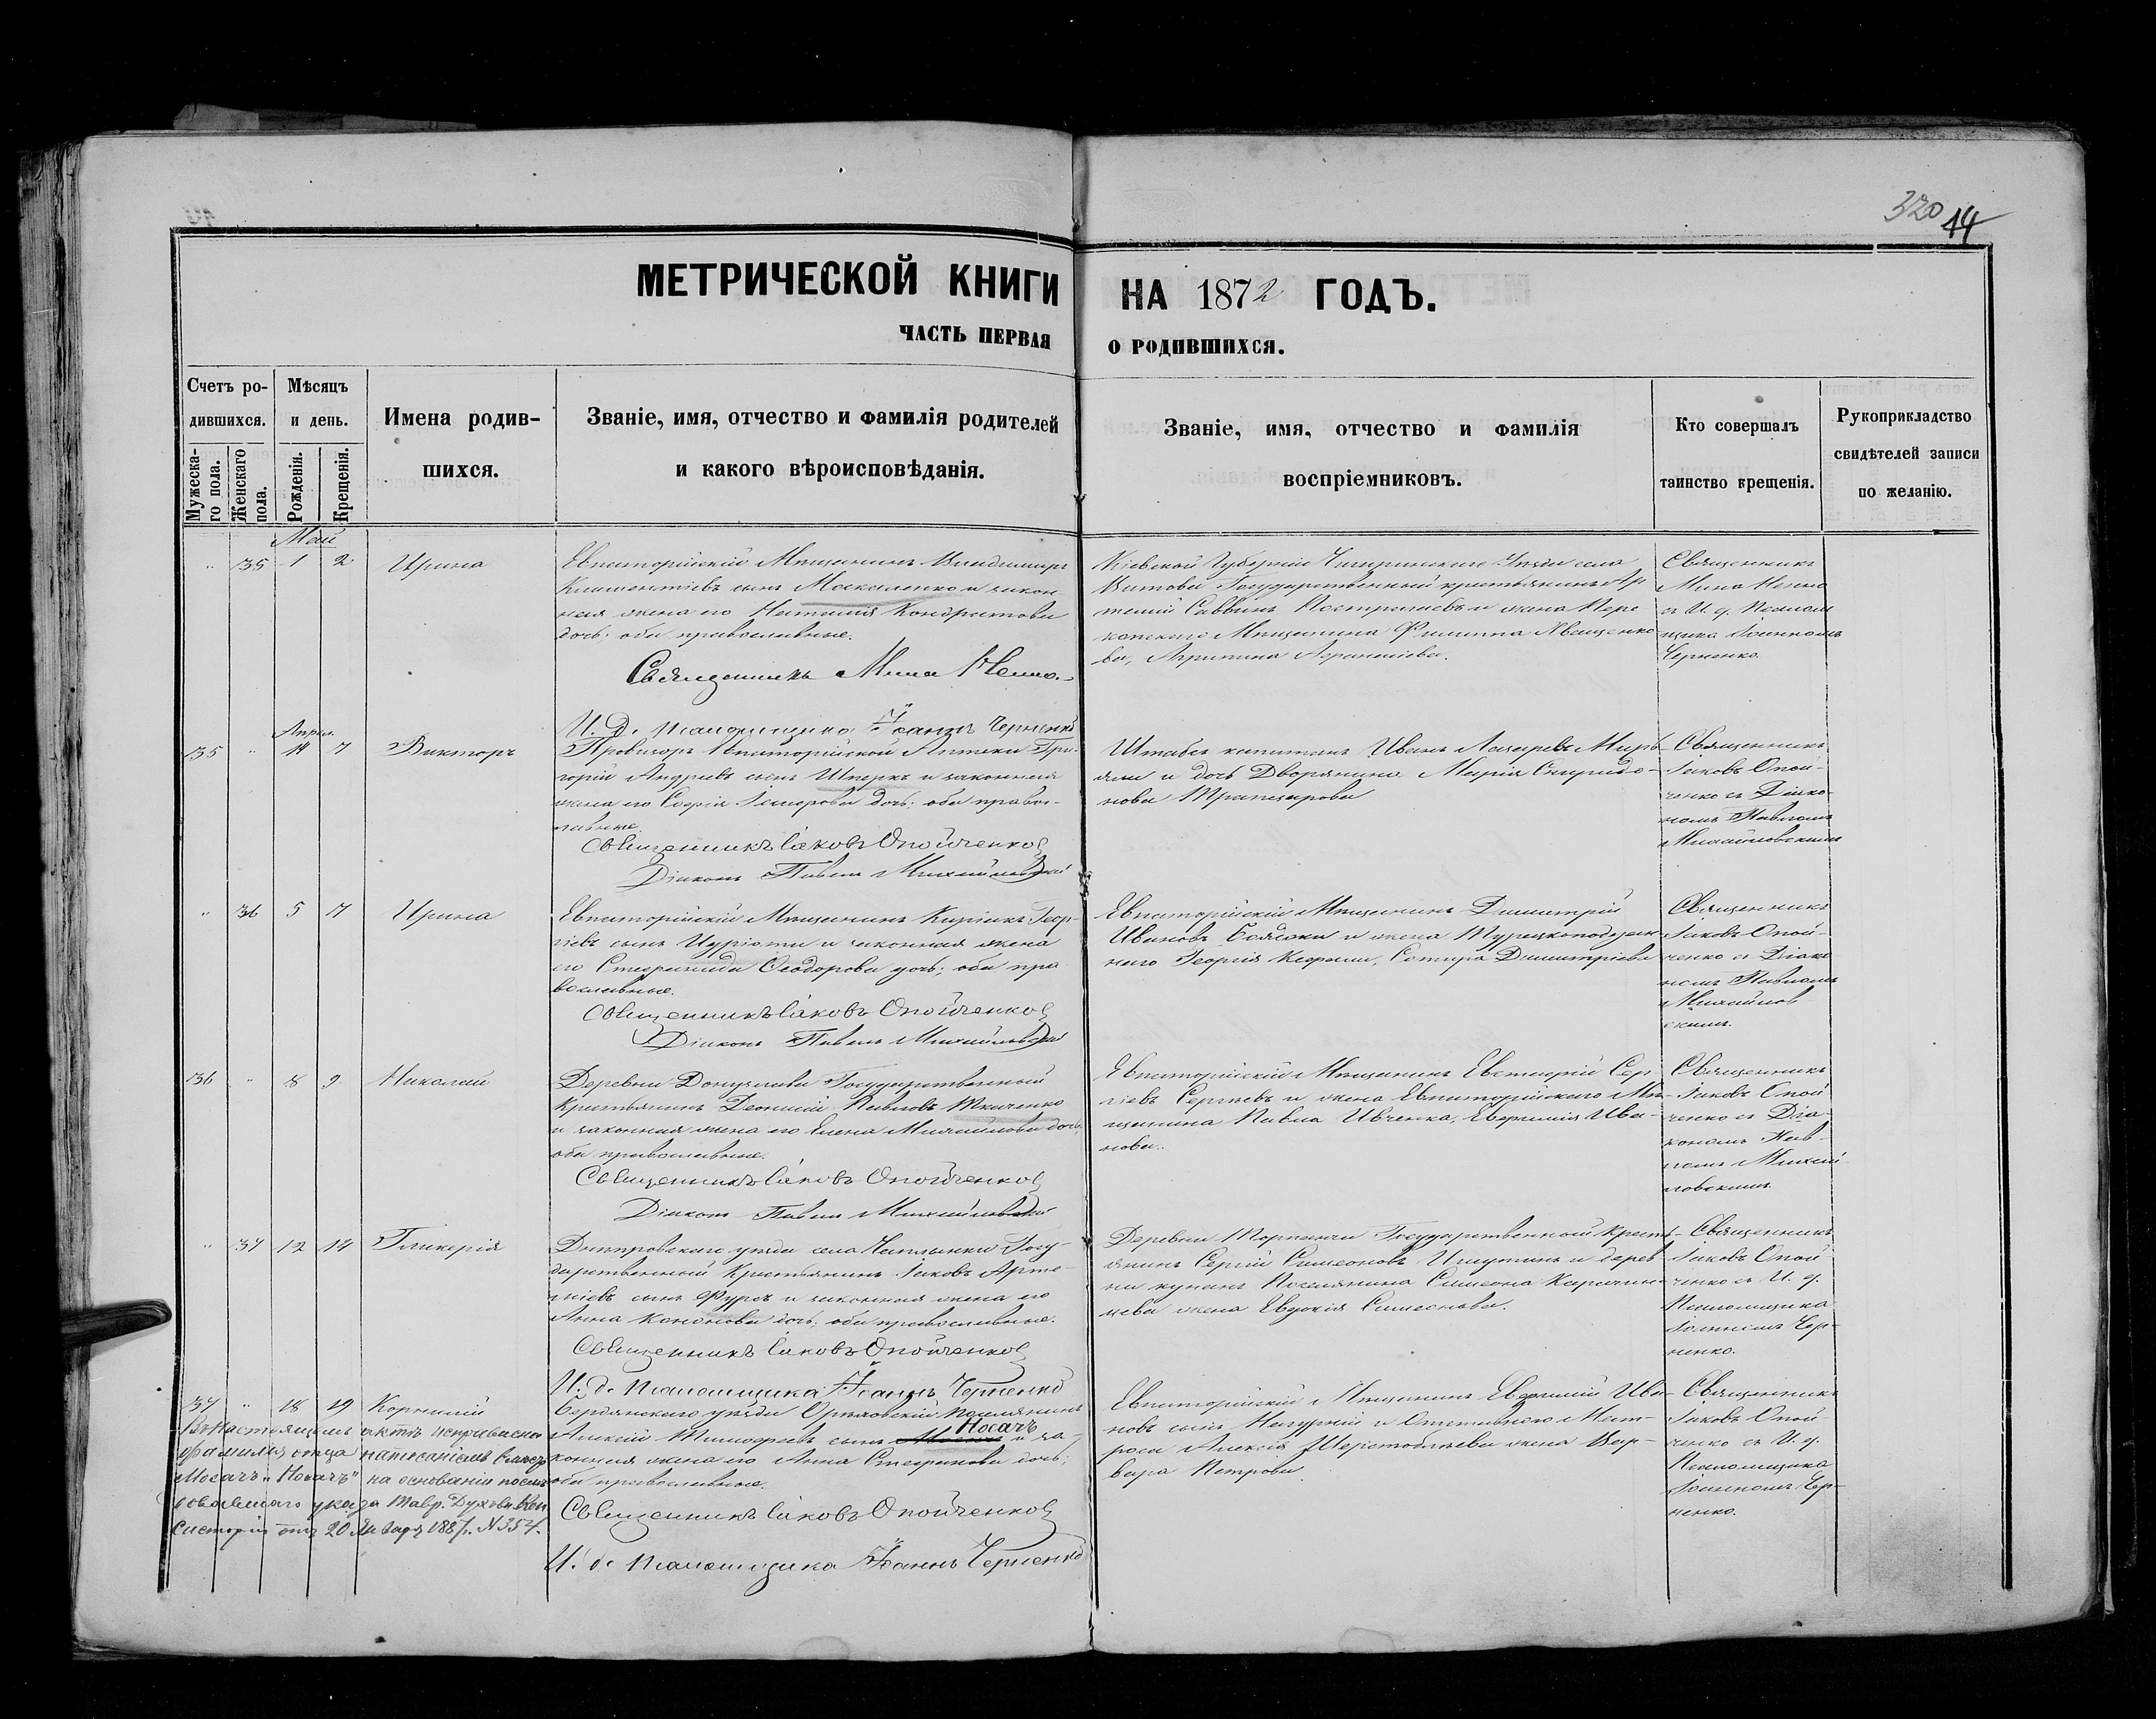 320 44
МЕТРИЧЕСКОЙ КНИГИ НА 1872 ГОДЪ.
ЧАСТЬ ПЕРВАЯ О РОДИВШИХСЯ.
Счетъ родившихся.
Мужескаго пола.
Женскаго пола.
Мѣсяцъ и день.
Рожденія.
Крещенія.
Имена родившихся.
Званіе, имя, отчество и фамилія родителей
и какого вѣроисповѣданія.
Званіе, имя, отчество и фамилія
воспріемниковъ.
Кто совершалъ
таинство крещенія.
Рукоприкладство
свидѣтелей записи
по желанію.
Май
" 35 1 2 Ирина
Евпаторійскій Мѣщанинъ Владимиръ
Климентіевъ сынъ Москаленко и закон-
ная жена его Наталія Кондратова
дочь; оба православные.
Священникъ Мина
Кіевской Губерніи Чигиринскаго Уѣзда села
Витова Государственный крестьянинъ Ар
темій Саввинъ и жена Пере
копскаго Мѣщанина Филиппа Иващенко
ва, Агрипина
Священникъ
Мина
съ И. д. Псалом
щика Іоанномъ
Черненко.
И. д. Псаломщика Іоаннъ Черненко
Апрѣл.
35 " 14 7 Викторъ
Провизоръ Евпаторійской Аптеки Гри-
горій Андреевъ сынъ и законная
жена его Софія дочь; оба право-
славные.
Священникъ Іаковъ Опойченко
Діаконъ Павелъ Михайловскій
Штабсъ капитанъ Иванъ Лазаревъ
и дочь Дворянина Марія Спиридо-
нова
Священникъ
Іаковъ Опой-
ченко съ Діако-
номъ Павломъ
Михайловскимъ
" 36 5 7 Ирина
Евпаторійскій Мѣщанинъ Киріакъ Геор-
гіевъ сынъ и законная жена
его Стефанида Ѳеодорова дочь; оба пра
вославные.
Священникъ Іаковъ Опойченко
Діаконъ Павелъ Михайловскій
Евпаторійскій Мѣщанинъ Димитрій
Ивановъ и жена Турецкоподдан-
наго Георгія Димитріева
Священникъ
Іаковъ Опой-
ченко съ Діако
номъ Павломъ
Михайлов
скимъ.
36 " 8 9 Николай
Деревни Донузлава Государственный
Крестьянинъ Леонтій Павловъ Ткаченко
и законная жена его Елена Михайлова дочь,
оба православные.
Священникъ Іаковъ Опойченко
Діаконъ Павелъ Михайловскій
Евпаторійскій Мѣщанинъ Евстафій Сер-
гіевъ Сергѣевъ и жена Евпаторійскаго Мѣ-
щанина Павла Ивченка, Евфимія Ива-
нова.
Священникъ
Іаковъ Опой
ченко съ Діа-
кономъ Пав-
ломъ Михай
ловскимъ
" 37 12 14 Гликерія
Днѣпровскаго уѣзда села Чаплынки Госу-
дарственный Крестьянинъ Іаковъ Арте-
міевъ сынъ Фурса и законная жена его
Анна Кононова дочь; оба православные.
Священникъ Іаковъ Опойченко
И. д. Псаломщика Іоаннъ Черненко
Деревни Государственный Кресть-
янинъ Сергій Симеоновъ и дерев-
ни Поселянина Симеона
жена Евдокія Симеонова.
Священникъ
Іаковъ Опой
ченко съ И. д.
Псаломщика
Іоанномъ Чер-
ненко.
37 " 18 19 Корнилій
Бердянскаго уѣзда Орѣховскій поселянинъ
Носачъ
Алексій Тимофеевъ сынъ и за-
конная жена его Анна Стефанова дочь;
оба православные.
Священникъ Іаковъ Опойченко
И. д. Псаломщика Іоаннъ Черненко
Въ настоящемъ актѣ исправлена
фамилія отца написаніемъ вмѣсто
"Мосачъ" "Носачъ" на основаніи послѣ
довавшаго указа Тавр. Духовн. Кон
систоріи отъ 20 Января 1887 г. №
Евпаторійскій Мѣщанинъ Евфимій Ива-
новъ сынъ и Отставного Мат-
роса Алексія жена Вар-
вара Петрова.
Священникъ
Іаковъ Опой
ченко съ И. д.
Псаломщика
Іоанномъ Чер-
ненко.